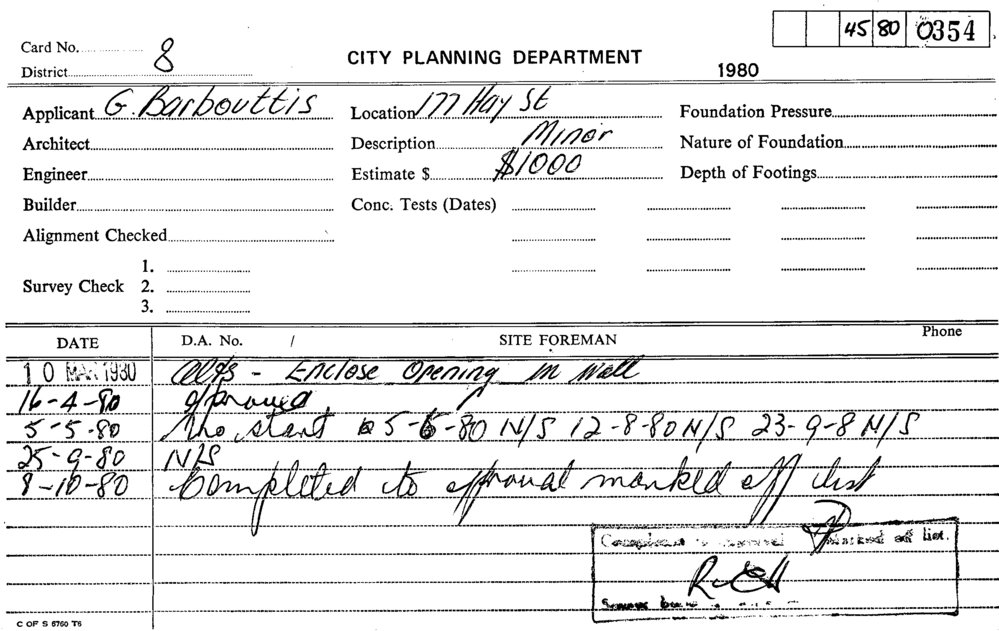 45 80 0354
Card No. 8
District
CITY PLANNING DEPARTMENT
1980
Applicant G. Barbouttis Location 177 Hay St Foundation Pressure
Architect Description Minor Nature of Foundation
Engineer Estimate $ $1000 Depth of Footings
Builder Conc. Tests (Dates)
Alignment Checked
1.
Survey Check 2.
3.
DATE D.A. No. / SITE FOREMAN Phone
10 MAR 1980 Alts - Enclose Opening in Wall
16-4-80 approved
5-5-80 No start 5-6-80 N/S 12-8-80 N/S 23-9-8 N/S
25-9-80 N/S
8-10-80 Completed to approval marked off list
Completed to approval marked off list.
C OF S 6760 T6